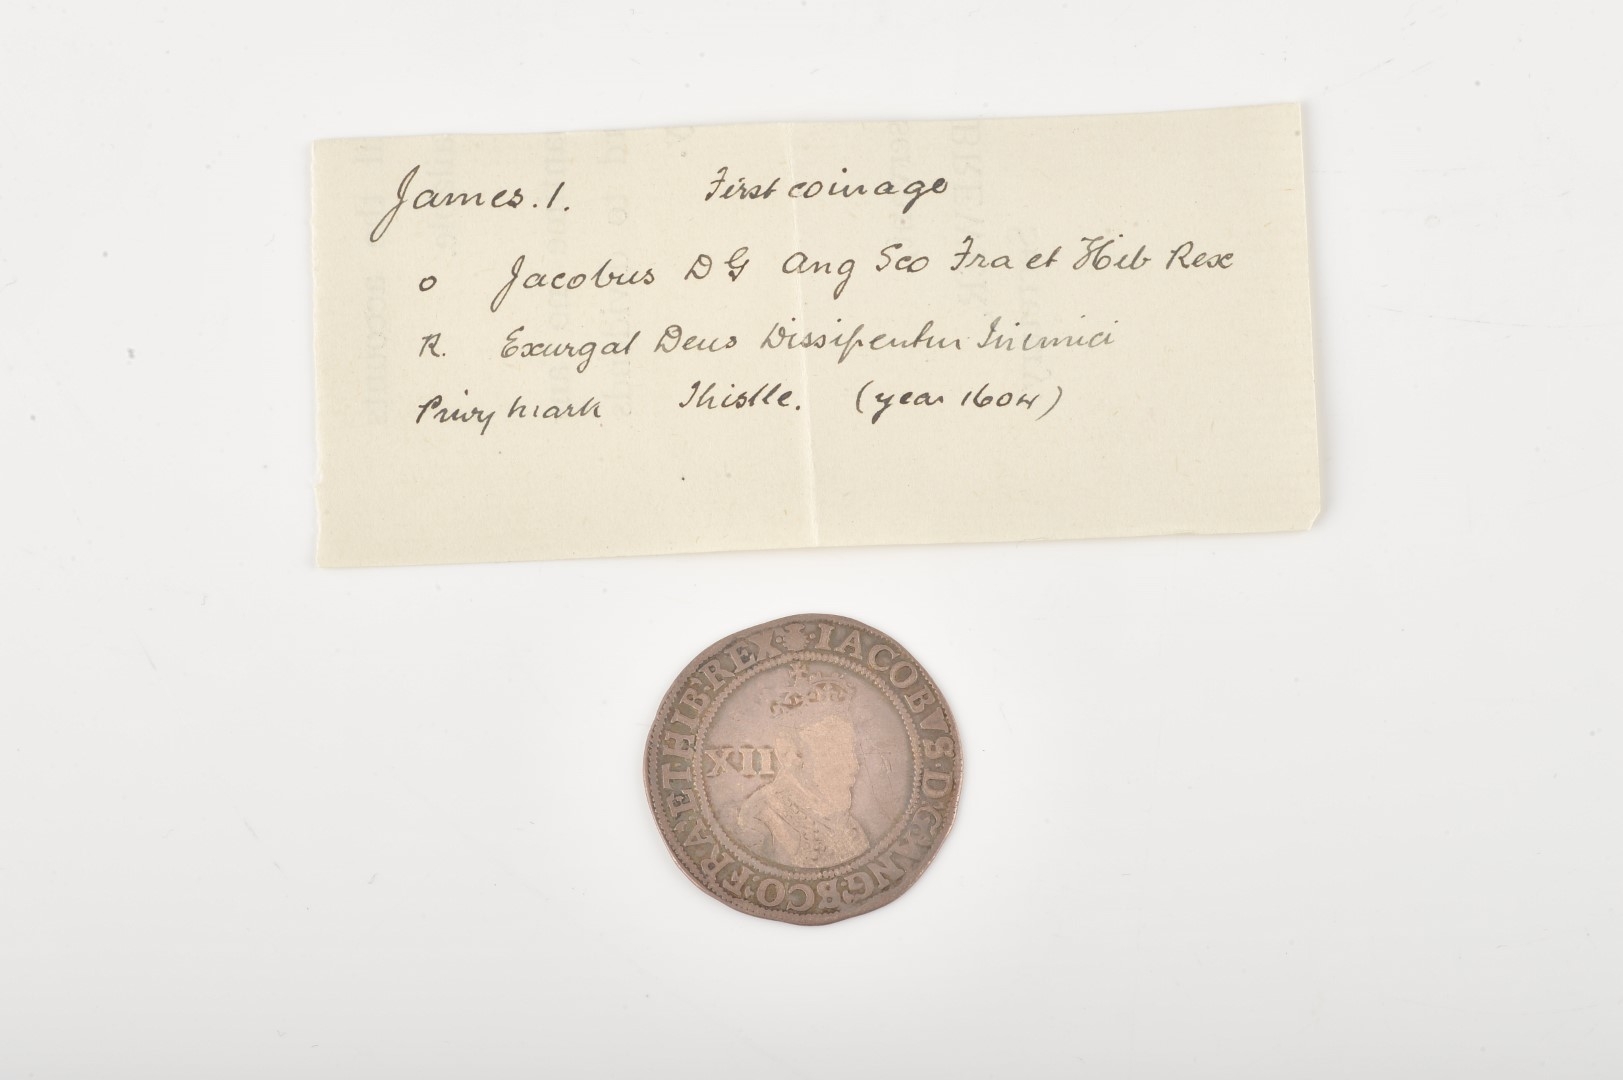 James. 1. First coinage
o Jacobus D G Ang Sco Fra et Hib Rex
R. Exurgat Deus Dissipentur Inimici
Privy mark Thistle. (year 1604)
IACOBVS·D·G·ANG·SCO·FRA·ET·HIB·REX·
XII